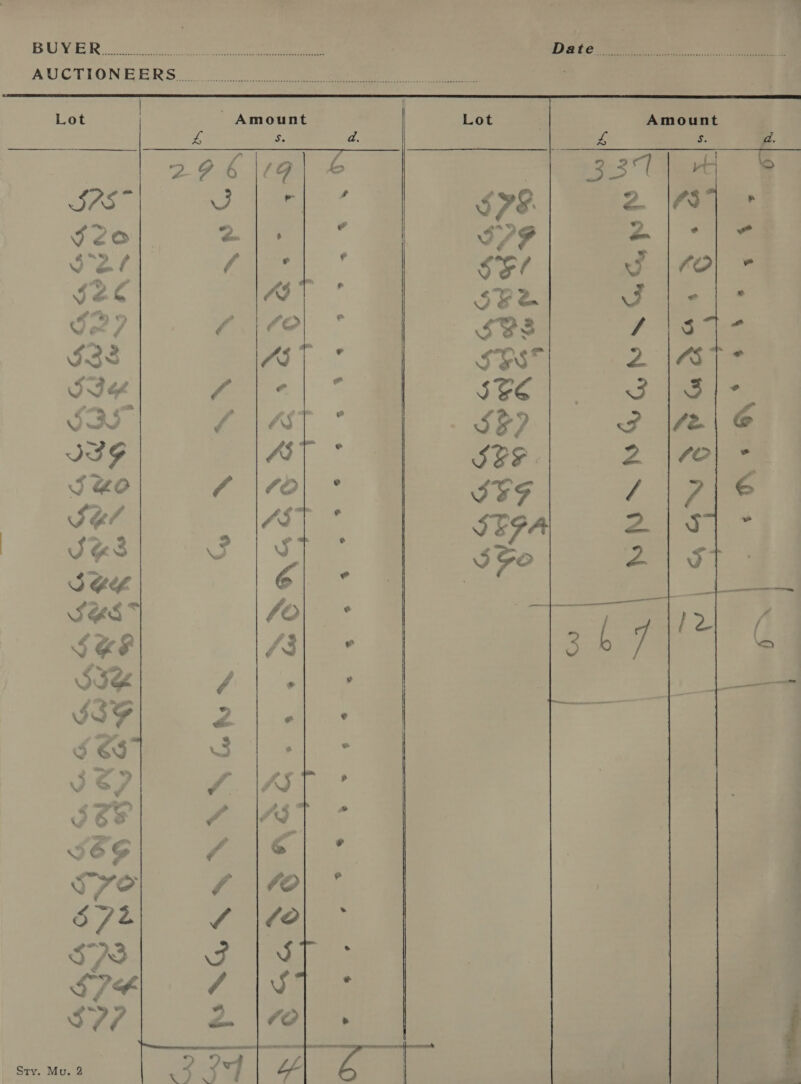 BUYER
Date
AUCTIONEERS
Lot Amount Lot Amount
£ s. d. £ s. d.
296 19 6
515 3 . .
520 2 . .
521 1 . .
526 15 .
527 1 10 .
533 15 .
534 1 . .
535 1 15 .
539 15 .
540 1 10 .
541 15 .
543 3 5 .
544 6 .
545 10 .
548 13 .
554 1 . .
559 2 . .
565 3 . .
567 1 15 .
568 1 15 .
569 1 6 .
570 1 10 .
572 1 10 .
573 3 5 .
574 1 5 .
577 2 10 .
337 4 6
337 4 6
578 2 15 .
579 2 . .
581 3 10 .
582 3 . .
583 1 5 .
585 2 15 .
586 3 3 .
587 3 12 6
588 2 10 .
589 1 7 6
589A 2 5 .
590 2 5 .
367 12 6
Sty. Mu. 2